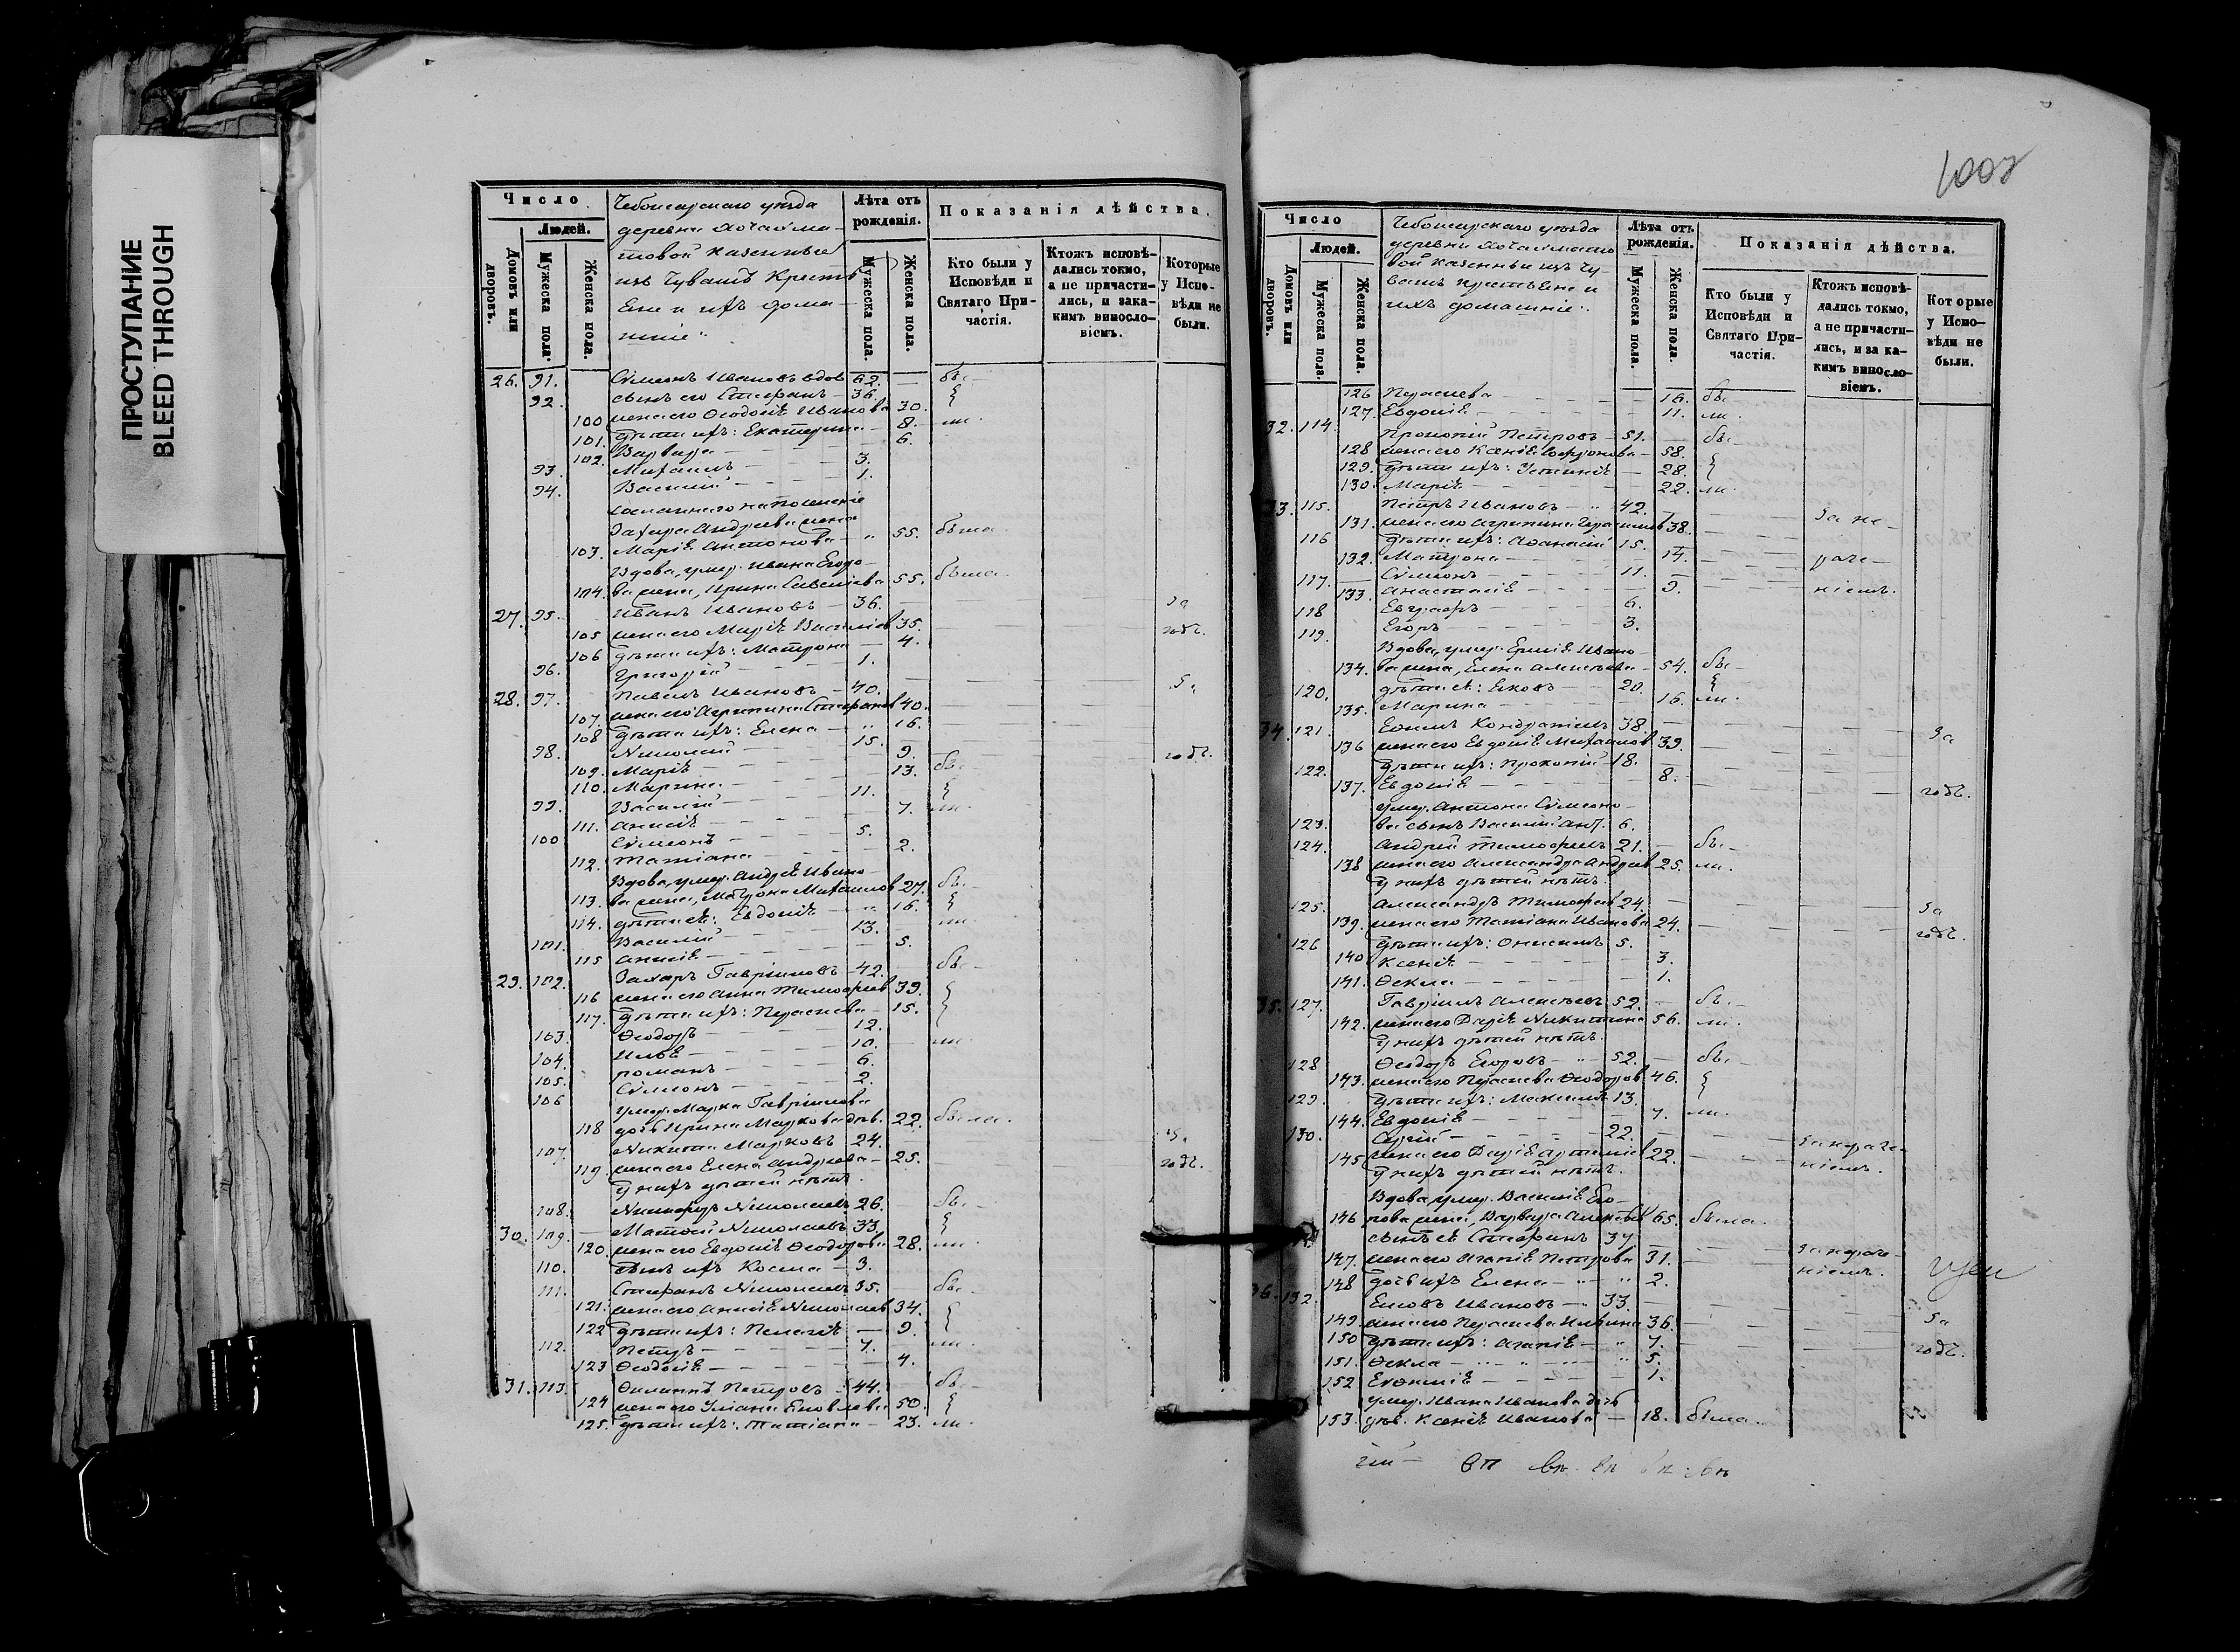 ПРОСТУПАНИЕ
BLEED THROUGH
Число
Людей.
Домовъ или дворовъ.
Мужеска пола.
Женска пола.
Чебоксарскаго уѣзда
деревни
товой казенные
изъ Чувашъ Кресть
яне и ихъ дома
шніе:
Лѣта отъ рожденія.
Мужеска пола.
Женска пола.
Показанія дѣйства.
Кто были у Исповѣди и Святаго Причастія.
Ктожъ исповѣдались токмо, а не причастились, и за каким винословіемъ.
Которые у Исповѣди не были.
26. 91. Сѵмеонъ Ивановъ вдов 62. — бы
92. сынъ его Стефанъ — 36.
100 жена его Ѳеодосія Иванова 30.
101. дѣти ихъ: Екатерина — 8. ли
102. Варвара — 6.
93. Михаилъ — 3.
94. Василій — 1.
Захара Андреева жена
103. Марія Антонова — 55. была
Вдова, умер. Ивана Егоро
104. ва жена, Ирина Савельева 55. была.
27. 95. Иванъ Ивановъ — 36. — за
105 жена его Марія Васильев 35. годъ.
106 дѣти ихъ: Матрона — 4.
96. Григорій — 1.
28. 97. Павелъ Ивановъ — 40. — за
107. жена его Агрипина Стефанов 40.
108 дѣти ихъ: Елена — 16.
98. Николай — 15. годъ.
109. Марія — 9.
110. Марина — 13. бы
99. Василій — 11.
111. Анисія — 7. ли
100 Сѵмеонъ — 5.
112. Татіана — 2.
Вдова, умер. Андрея Ивано
113. ва жена, Матрона Михаилов 27. бы
114. дѣти ея: Евдокія — 16.
101. Василій — 13. ли
115 Анисія — 5.
29. 102. Захаръ Гавріиловъ — 42. бы
116 жена его Анна Тимофеев 39.
117. дѣти ихъ: Параскева — 15.
103. Ѳеодоръ — 12.
104. Илья — 10. ли
105. Романъ — 6.
106 Сѵмеонъ — 2.
умер. Марка Гавріилова
118 дочь Ирина Маркова дѣв. 22. была.
107. Никита Марковъ 24. за
119. жена его Елена Андреева — 25. годъ.
У нихъ дѣтей нѣтъ.
108. Никифоръ Николаевъ 26. бы
30. 109. Матвей Николаевъ 33.
120. жена его Евдокія Ѳеодорова 28. ли
110. сынъ ихъ Косма — 3.
111. Стефанъ Николаевъ 35. бы
121. жена его Анисія Николаев 34.
122 дѣти ихъ: Пелагія — 9.
112. Петръ — 7. ли
123 Ѳеодосія — 4.
31. 113. Филиппъ Петровъ 44. бы
124 жена его Уліана Яковлева 50.
125. дѣти ихъ: Татіана — 23. ли
Число
Людей.
Домовъ или дворовъ.
Мужеска пола.
Женска пола.
Чебоксарскаго уѣзда
деревни
вой казенные изъ Чу
вашъ крестьяне и
ихъ домашніе:
Лѣта отъ рожденія.
Мужеска пола.
Женска пола.
Показанія дѣйства.
Кто были у Исповѣди и Святаго Причастія.
Ктожъ исповѣдались токмо, а не причастились, и за каким винословіемъ.
Которые у Исповѣди не были.
126 Параскева — 16. бы
127. Евдокія — 11. ли.
32. 114. Прокопій Петровъ — 51. бы
128 жена его Ксенія — 58.
129. дѣти ихъ: Устинія — 28.
130. Марія — 22. ли
33. 115. Петръ Ивановъ — 42. За не
131. жена его Агрипина 38.
116 дѣти ихъ: Аѳанасій 15.
132. Матрона — 14. раче
117. Сѵмеонъ — 11.
133. Анастасія — 9. ніемъ.
118 Евграфъ — 6.
119. Егоръ — 3.
Вдова, умер. Ермія Ивано
134. ва жена, Елена Алексѣева — 54. бы
120. дѣти ея: Яковъ — 20.
135. Марина — 16. ли.
34. 121. Ефимъ Кондратьевъ 38. за
136 жена его Евдокія Михаилов 39.
122. дѣти ихъ: Прокопій 18.
137. Евдокія — 8. годъ.
умер. Антона Сѵмеоно
123. ва сынъ Василій Ант. 6.
124. Андрей Тимофеевъ 21. бы
138 жена его Александра Андреев 25. ли.
У нихъ дѣтей нѣтъ.
125. Александръ Тимофеев 24. за
139. жена его Татіана Иванова 24. годъ.
126 дѣти ихъ: Онисимъ 5.
140 Ксенія — 3.
141. Ѳекла — 1.
35. 127. Гавріилъ Алексѣевъ 52. бы
142. жена его Дарія Никитина 56. ли.
У нихъ дѣтей нѣтъ.
128 Ѳеодоръ Егоровъ — 52. бы
143. жена его Параскева Ѳеодоров 46.
129. дѣти ихъ: Максимъ 13.
144. Евдокія — 7. ли.
130. Сергій — 22. За нераче
145 жена его Дарія Артемьев 22. ніемъ.
У нихъ дѣтей нѣтъ.
Вдова, умер. Василія Его
146 рова жена, Варвара Алексѣев 65. была.
сынъ ея Стефанъ 34
147. жена его Агапія Петрова 31. За нераче
148 дочь ихъ Елена — 2. ніемъ.
36. 132. Яковъ Ивановъ — 33.
149. жена его Параскева Ильина 36. за
150 дѣти ихъ: Агапія — 7. годъ.
151. Ѳекла — 5.
152 Евѳимія — 1.
умер. Ивана Иванова дочь
153. дѣв. Ксенія Иванова — 18. была.